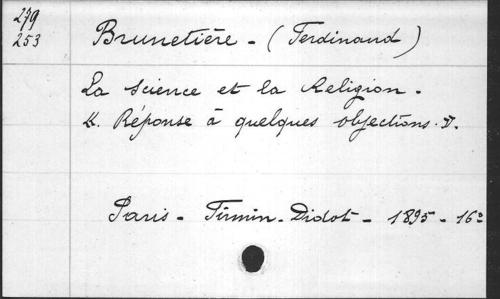 279
253
Brunetière - (Ferdinand)
La Science et la Religion.
Réponse à quelques objections.
Paris - Firmin-Didot - 1895 - 16º